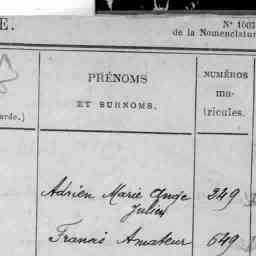 E.
N° 1003
de la Nomenclatur
PRÉNOMS
ET SURNOMS.
NUMÉROS
ma-
tricules.
arde.)
Adrien Marie Ange 349
Julien
Francis Amateur 649